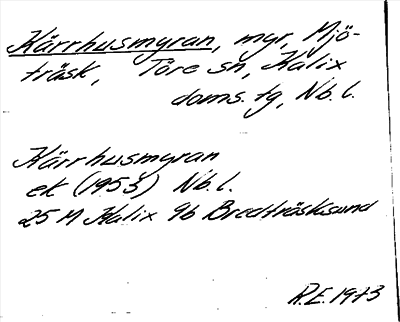 Kärrhusmyran, myr, Mjö-
träsk, Töre sn, Kalix
doms. tg, Nb. l.
Kärrhusmyran
ek (1953) Nb. l.
25 M Kalix 9b Bredträsksund
R.E. 1973